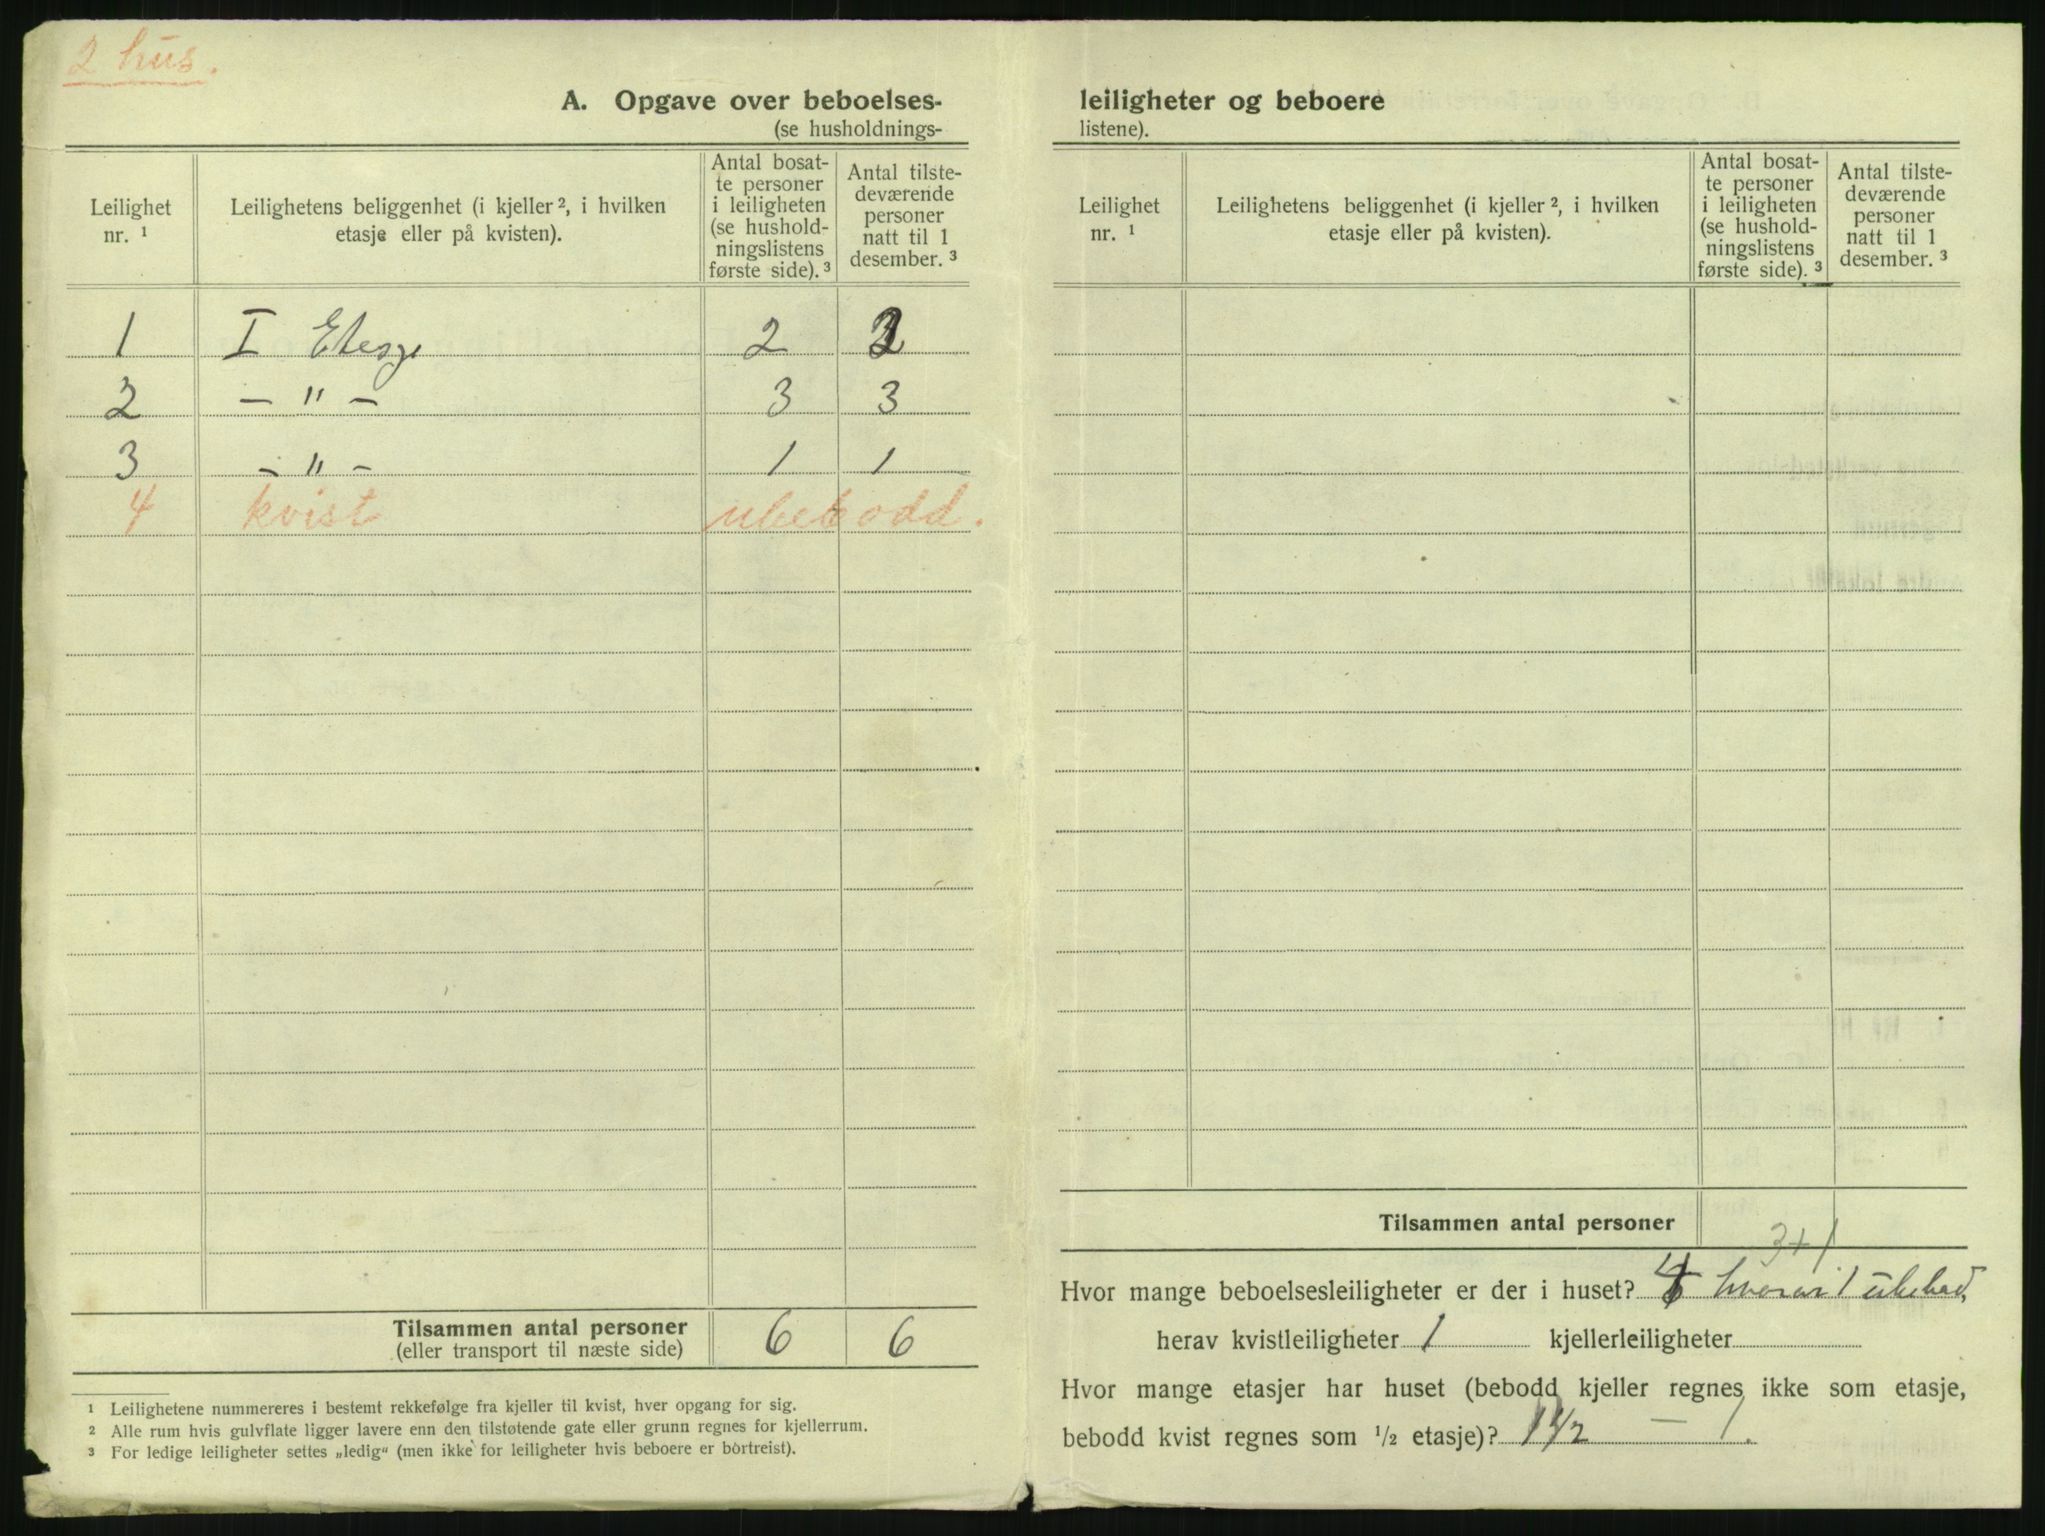 2 hus.
A. Opgave over beboelses-
(se husholdnings-
Leilighet nr. ¹
Leilighetens beliggenhet (i kjeller ², i hvilken etasje eller på kvisten).
Antal bosat-
te personer
i leiligheten
(se hushold-
ningslistens
første side). ³
Antal tilste-
deværende
personer
natt til 1
desember. ³
1 I Etasje 2 2
2 — " — 3 3
3 — " — 1 1
4 kvist ubebodd.
Tilsammen antal personer 6 6
(eller transport til næste side)
¹ Leilighetene nummereres i bestemt rekkefølge fra kjeller til kvist, hver opgang for sig.
² Alle rum hvis gulvflate ligger lavere enn den tilstøtende gate eller grunn regnes for kjellerrum.
³ For ledige leiligheter settes „ledig“ (men ikke for leiligheter hvis beboere er bortreist).
leiligheter og beboere
listene).
Leilighet nr. ¹
Leilighetens beliggenhet (i kjeller ², i hvilken etasje eller på kvisten).
Antal bosat-
te personer
i leiligheten
(se hushold-
ningslistens
første side). ³
Antal tilste-
deværende
personer
natt til 1
desember. ³
Tilsammen antal personer
3+1
Hvor mange beboelsesleiligheter er der i huset? 4 hvorav 1 ubebod,
herav kvistleiligheter 1 kjellerleiligheter
Hvor mange etasjer har huset (bebodd kjeller regnes ikke som etasje,
bebodd kvist regnes som ½ etasje)? 1½ — 1.